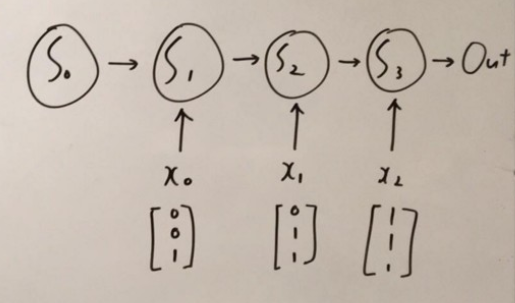 S₀ → S₁ → S₂ → S₃ → Out
x₀ x₁ x₂
[0 [0 [1
0 1 1
1] 1] 1]